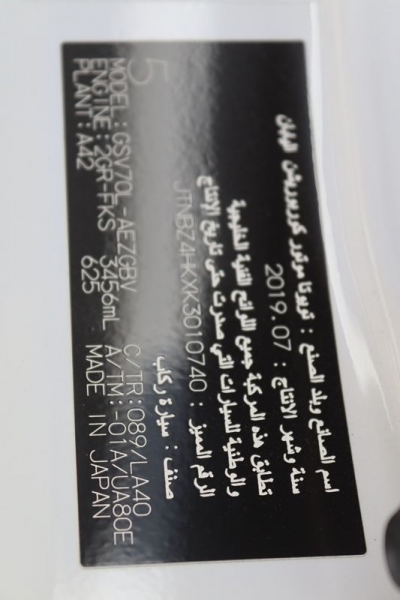 اسم الصانع وبلد الصنع : تويوتا موتور كوربوريشن اليابان
سنة وشهر الانتاج : 2019.07
تطابق هذه المركبة جميع اللوائح الفنية الخليجية
والوطنية للسيارات التي صدرت حتى تاريخ الانتاج
الرقم المميز : JTNBZ4HKXK3010740
صنف : سيارة ركاب
5
MODEL:GSV70L-AEZGBV C/TR:089/LA40
ENGINE:2GR-FKS 3456mL A/TM:-01A/UA80E
PLANT:A42 625 MADE IN JAPAN